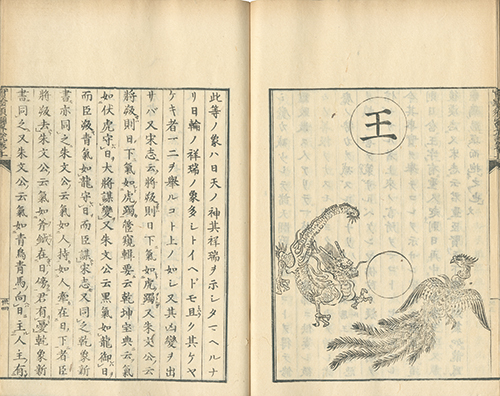 王
此等ノ象ハ日天ノ神其祥瑞ヲ示シタマヘルナ
リ日輪ノ祥瑞ノ象多シトイヘドモ且ク其ケヤ
ケキ者一二ヲ舉ルコト上ノ如シ又其凶變ヲ出
サバ又宋志云將殺則日下氣如虎躅又朱文公云
將殺則日下氣如虎躅管窺輯要云乾坤寶典云氣
如伏虎守日大將謀變又朱文公云黒氣如龍御日
而臣殺青氣如龍守日而臣謀宋志又同之乾象新
書亦同之朱文公云氣如人持如人牽在日下者臣
將殺去朱文公云氣如斧鉞在日傍君有憂乾象新
書同之又朱文公云氣如青烏青馬向日主人主有